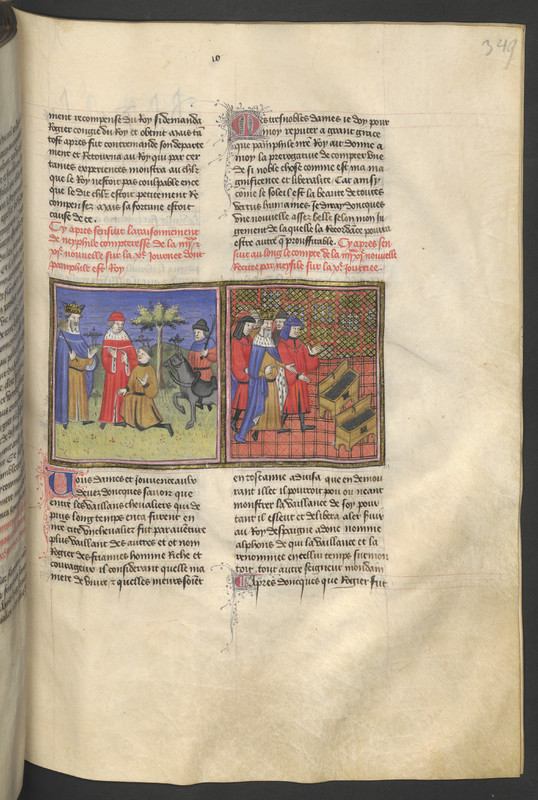 349
ment recompensé du Roy si demanda
Rogier congié du Roy et obtint Mais tā
tost apres fut contremandé son departe
ment et Retourna au Roy qui par cer
taines experiences monstra au chlr
que le Roy n'estoit pas coulpable en ce
que le dit chlr estoit petitement Re
compensez Mais sa fortune estoit
cause de ce.
Cy apres sensuit la raisonnement
de neyphile compteresse de la
nouvelle sur la xe Journee dont
pamphile est Roy
Mes tresnobles dames ie doy pour
moy reputer a grant grace
que pamphile nre Roy ait donne a
moy la prerogative de compter une
de si noble chose comme est ma
gnificence et liberalite Car ainsy
come le soleil est la beaute de toutes
vertus humaines Je diray doncques
une nouvelle assez belle selon mon Ju
gement de laquelle la Recordāce pourra
estre autre q prouffitable. Cy apres sen
suit au long le compte de la nouvelle
Recitee par neyfile sur la xe journee.
Vous dames et jouvenceaulx
devez doncques savoir que
entre les vaillans chevaliers qui de
puis long temps en ca furent en
nre cite un chevalier fut par aventure
plus vaillant des autres et ot nom
Rogier des fitannes homme riche et
courageux il considerant quelle ma
niere de vivre et quelles meurs soiet
en toscanne advisa que en demou
rant illec il pourroit pou ou neant
monstrer la vaillance de soy pour
tant il esleut et delibera aler suir
au Roy despaigne adonc nomme
alphons de qui la vaillance et la
renommee en cellui temps surmon
toit tout autre seigneur mondain
Apres doncques que Rogier fut